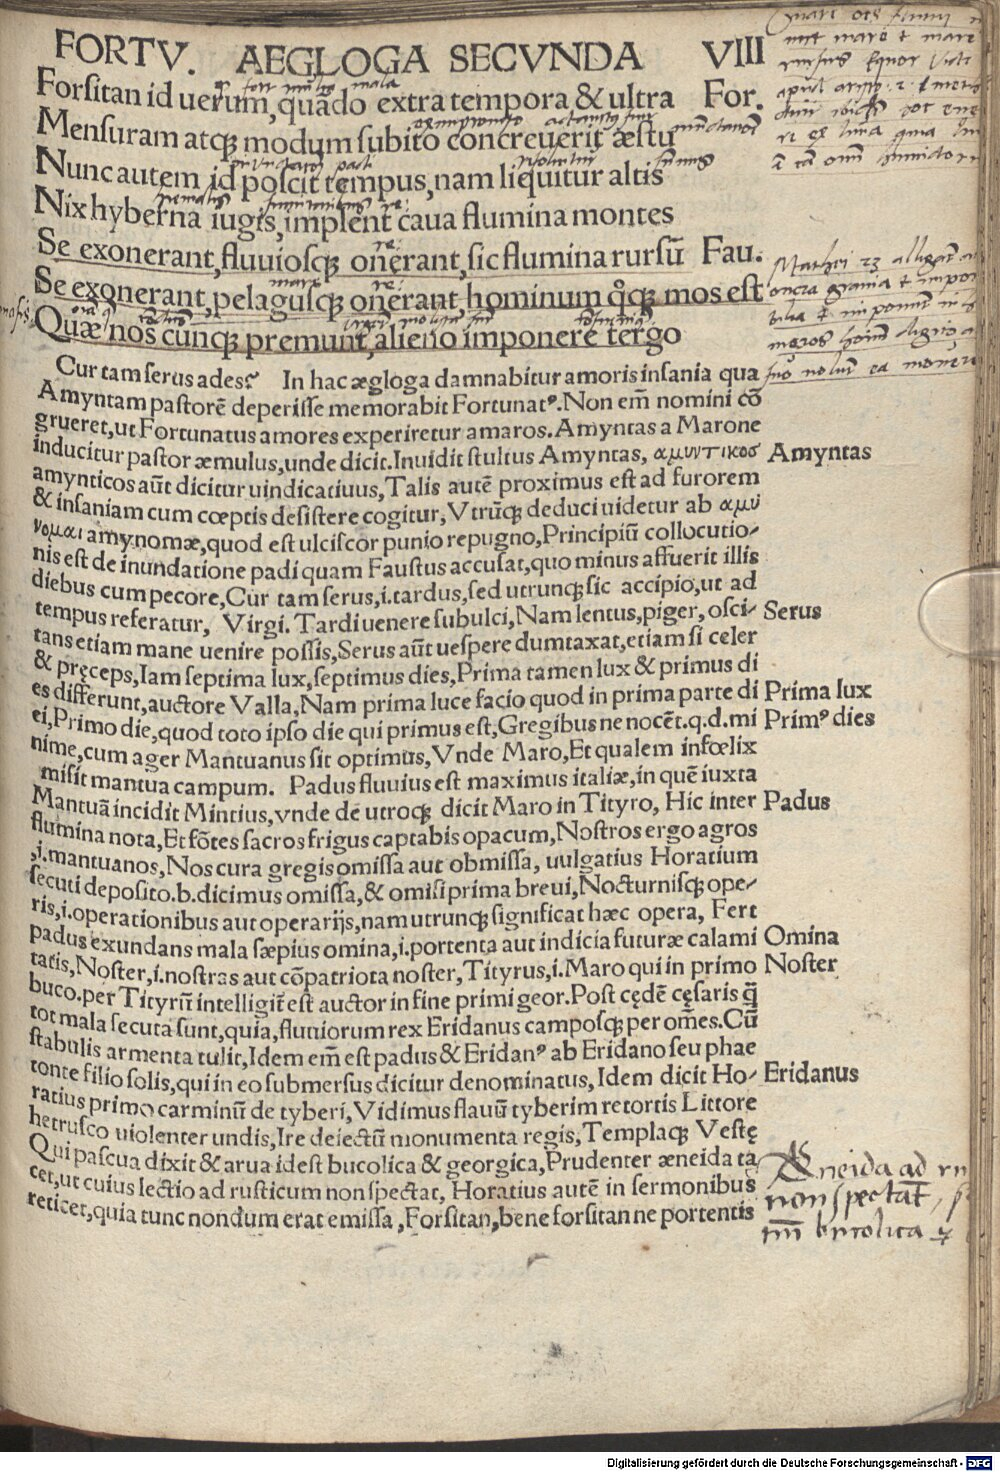 FORTV. AEGLOGA SECVNDA VIII
Forsitan id uerum, quãdo extra tempora & ultra For.
Mensuram atqꝫ modum subito concreuerit æstu
Nunc autem id poscit tempus, nam liquitur altis
Nix hyberna iugis, implent caua flumina montes
Se exonerant, fluuiosqꝫ onerant, sic flumina rursũ Fau.
Se exonerant, pelagusqꝫ onerant, hominum qͦqꝫ mos est
Quæ nos cunqꝫ premunt, alieno imponere tergo
Cur tam serus ades? In hac ægloga damnabitur amoris insania qua
Amyntam pastorẽ deperisse memorabit Fortunatꝰ. Non em̃ nomini cõ
grueret, ut Fortunatus amores experiretur amaros. Amyntas a Marone
inducitur pastor æmulus, unde dicit. Inuidit stultus Amyntas, αμυντικοσ Amyntas
amynticos aũt dicitur uindicatiuus, Talis autẽ proximus est ad furorem
& insaniam cum cœptis desistere cogitur, Vtrũqꝫ deduci uidetur ab αμυ
νομαι amynomæ, quod est ulciscor punio repugno, Principiũ collocutio-
nis est de inundatione padi quam Faustus accusat, quo minus affuerit illis
diebus cum pecore, Cur tam serus, i. tardus, sed utrunqꝫ sic accipio, ut ad
tempus referatur, Virgi. Tardi uenere subulci, Nam lentus, piger, osci- Serus
tans etiam mane uenire possis, Serus aũt uespere dumtaxat, etiam si celer
& pręceps, Iam septima lux, septimus dies, Prima tamen lux & primus di
es differunt, auctore Valla, Nam prima luce facio quod in prima parte di Prima lux
ei, Primo die, quod toto ipso die qui primus est, Gregibus ne nocẽt. q.d. mi Primꝰ dies
nime, cum ager Mantuanus sit optimus, Vnde Maro, Et qualem infœlix
misit mantua campum. Padus fluuius est maximus italiæ, in quẽ iuxta
Mantuã incidit Mintius, vnde de utroqꝫ dicit Maro in Tityro, Hic inter Padus
flumina nota, Et fõtes sacros frigus captabis opacum, Nostros ergo agros
,i. mantuanos, Nos cura gregis omissa aut obmissa, uulgatius Horatium
secuti deposito .b. dicimus omissa, & omisi prima breui, Nocturnisqꝫ ope-
ris, i. operationibus aut operarijs, nam utrunqꝫ significat hæc opera, Fert
padus exundans mala sæpius omina, i. portenta aut indicia futuræ calami Omina
tatis, Noster, i. nostras aut cõpatriota noster, Tityrus, i. Maro qui in primo Noster
buco. per Tityrũ intelligit̃ est auctor in fine primi geor. Post cędẽ cęsaris q̃
tot mala secuta sunt, quia, fluuiorum rex Eridanus camposqꝫ per om̃es. Cũ
stabulis armenta tulit, Idem em̃ est padus & Eridanꝰ ab Eridano seu phae
tonte filio solis, qui in eo submersus dicitur denominatus, Idem dicit Ho- Eridanus
ratius primo carminũ de tyberi, Vidimus flauũ tyberim retortis Littore
hetrusco uiolenter undis, Ire deiectũ monumenta regis, Templaqꝫ Vestę
Qui pascua dixit & arua idest bucolica & georgica, Prudenter æneida ta
cet, ut cuius lectio ad rusticum non spectat, Horatius autẽ in sermonibus
reticet, quia tunc nondum erat emissa, Forsitan, bene forsitan ne portentis
Æneida ad
non spectat
bucolica
Digitalisierung gefördert durch die Deutsche Forschungsgemeinschaft - DFG